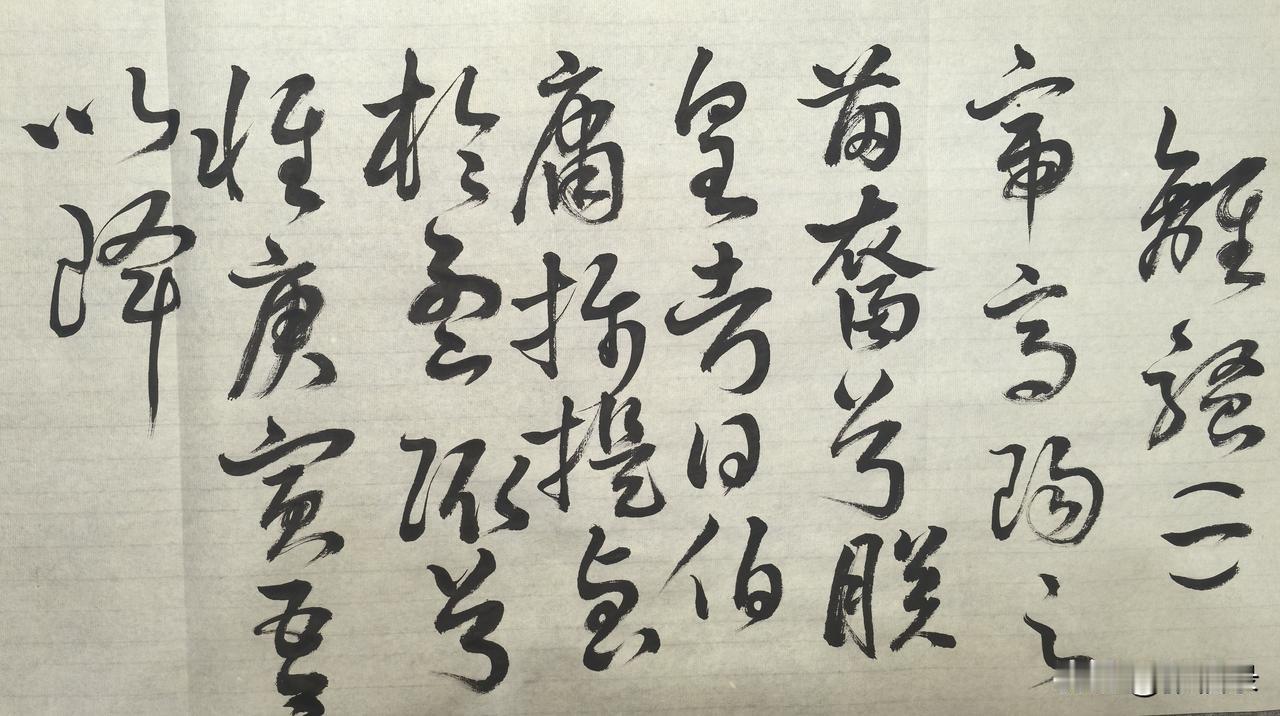 離騷(一)
帝高陽之
苗裔兮朕
皇考曰伯
庸攝提貞
於孟陬兮
惟庚寅吾
以降